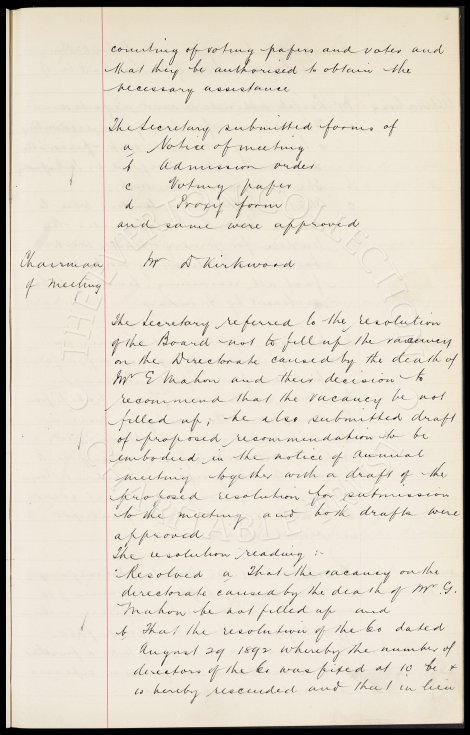 counting of voting papers and votes and
that they be authorised to obtain the
necessary assistance
The Secretary submitted forms of
a Notice of meeting
b Admission order
c Voting paper
d Proxy form
and same were approved
Chairman
of meeting
Mr D Kirkwood
The Secretary referred to the resolution
of the Board not to fill up the vacancy
on the Directorate caused by the death of
Mr E Mahon and their decision to
recommend that the vacancy be not
filled up; he also submitted draft
of proposed recommendation to be
embodied in the notice of annual
meeting together with a draft of the
proposed resolution for submission
to the meeting and both drafts were
approved
The resolution reading :-
"Resolved a That the vacancy on the
directorate caused by the death of Mr G.
Mahon be not filled up and
b That the resolution of the Co dated
August 29 1892 whereby the number of
directors of the Co was fixed at 10 be &
is hereby rescinded and that in lieu
THE EVERTON COLLECTION
CHARITABLE